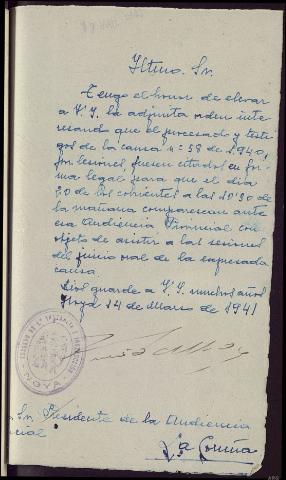 Iltmo. Sr.
Tengo el honor de elevar
a V.I. la adjunta orden inte-
resando que el procesado y testi-
gos de la causa nº 58 de 1.940,
por lesiones fuesen citados en for-
ma legal para que el dia
20 de los corrientes a las 10'30 de
la mañana comparescan ante
esa Audiencia Provincial con
objeto de asistir a las sesiones
del juicio oral de la expresada
causa.
Dios guarde a V.I. muchos años
Noya 14 de Marzo de 1941
NOYA
Sr. Presidente de la Audiencia
cial
La Coruña